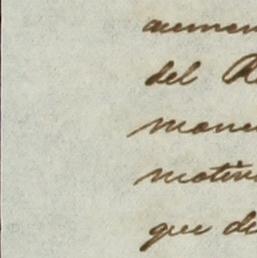 aumen
del R
mane
motiv
que de